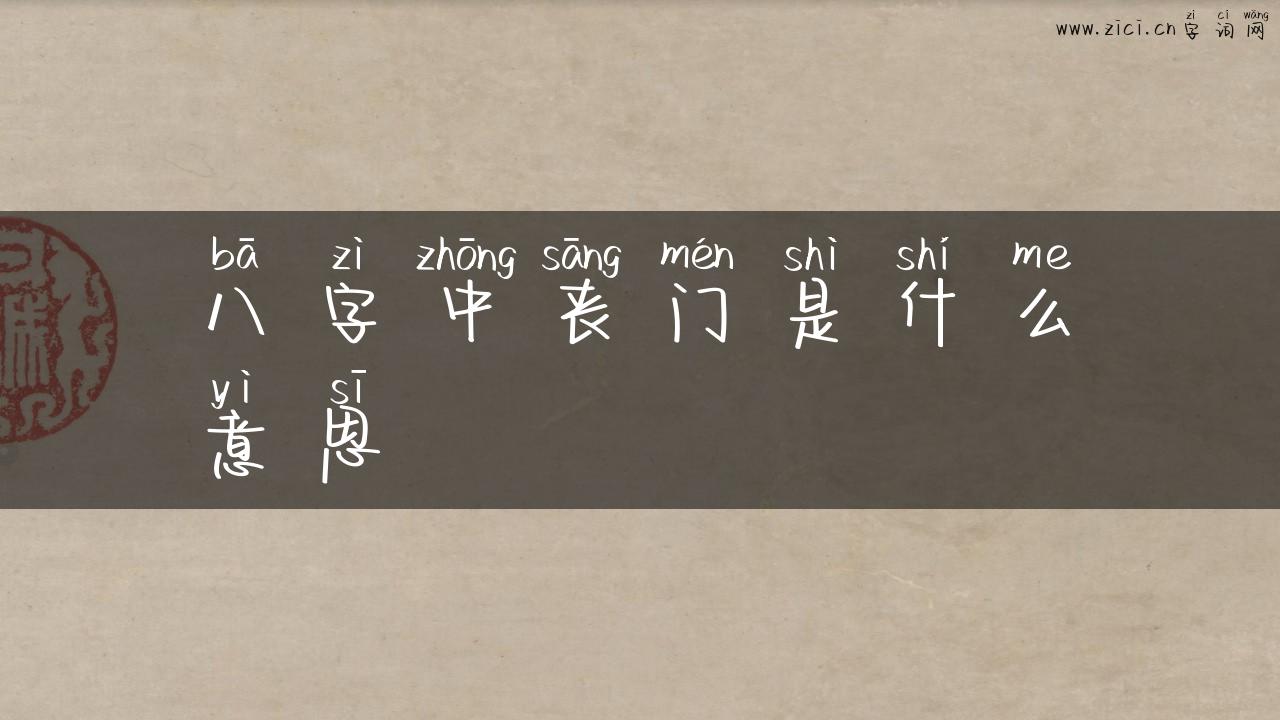 zì cí wǎng
www.zici.cn字词网
bā zì zhōng sāng mén shì shí me
八字中丧门是什么
yì sī
意思